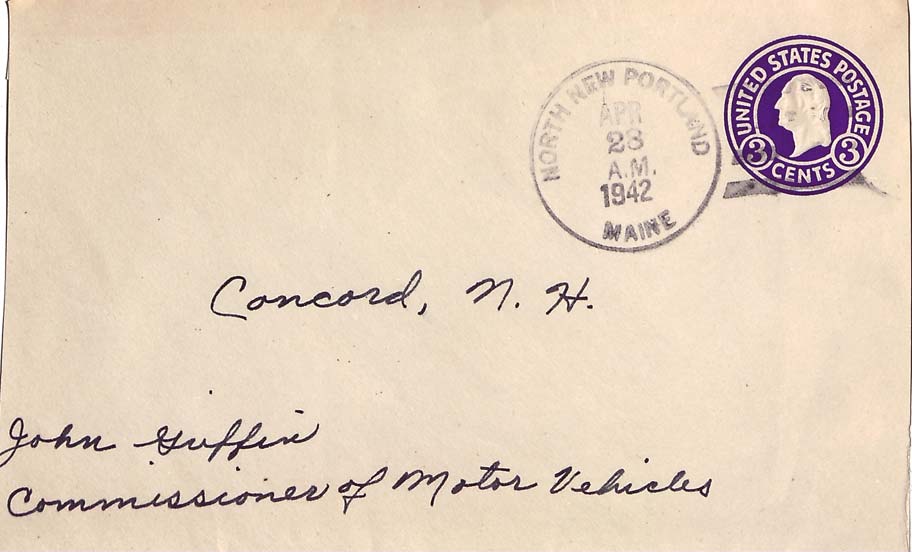 NORTH NEW PORTLAND
APR
28
A.M.
1942
MAINE
UNITED STATES POSTAGE
3 3
CENTS
Concord, N. H.
John Griffin
Commissioner of Motor Vehicles